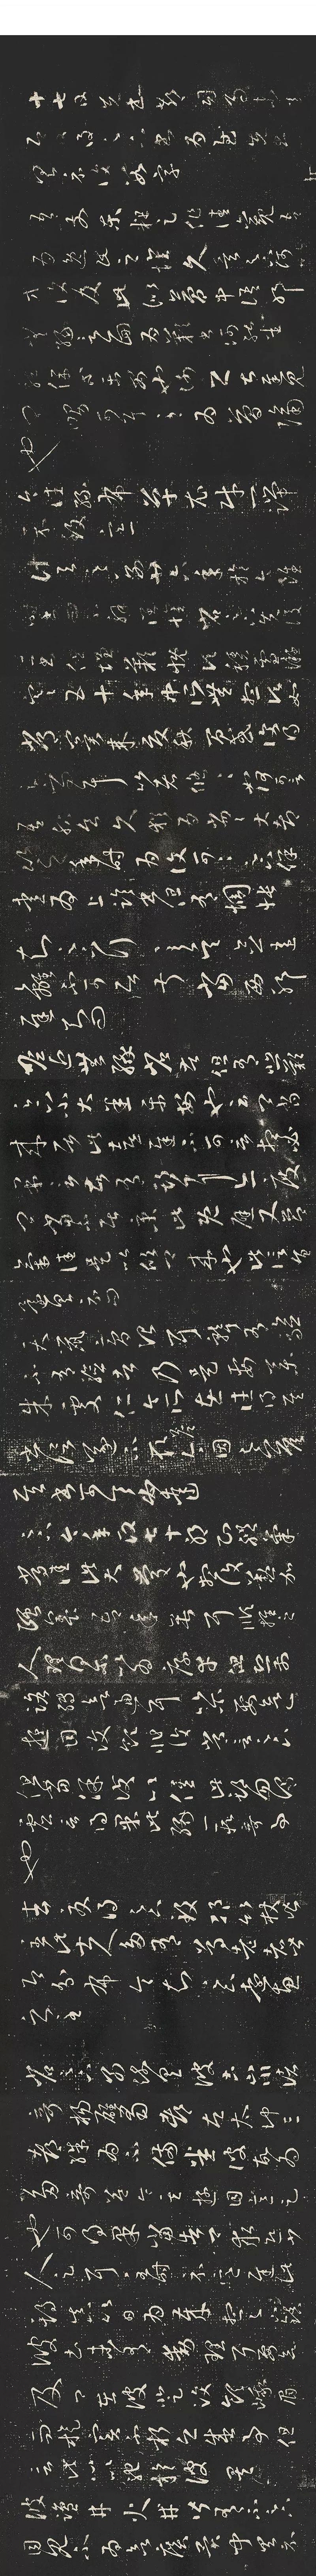 十七日先書郗司馬未去
即日得足下書為慰先書
以具示復數字
吾前東粗足作佳觀
吾為逸民之懷久矣足下何
以方復及此似夢中語耶
無緣言面為歎書何能悉
龍保等平安也謝之甚遲見
卿舅可耳至為簡隔
也
今往絲布單衣財一端
示致意
計與足下別廿六年於今
雖時書問不解闊懷省足下先後
二書但增歎慨頃積雪凝
寒五十年中所無想頃如
常冀來夏秋間或復得足下
問耳比者悠悠如何可言
吾服食久猶為劣劣大都
比之年時為復可可足下保
愛為上臨書但有惆悵
知足下行至吳念違
離不可居叔當西耶
遲知問
瞻近無緣省苦但有悲歎
足下小大悉平安也云卿當
來居此喜遲不可言想必
果言告有期耳亦度
卿當不居京此既避又節
氣佳是以欣卿來也此信旨
還具示問
天鼠膏治耳聾有驗
不有驗者乃是要藥
朱處仁今何在往得其書
信遂不取答今因足下答其
書可令必達
足下今年政七十耶知體氣
常佳此大慶也想復懃加
頤養吾年垂耳順推之
人理得爾以為厚幸但恐前
路轉欲逼耳以爾要欲一
遊目汶領非復常言足下
但當保護以期勿謂虛
言得果此緣一段奇事
也
去夏得足下致邛竹杖皆
至此士人多有尊老者皆
即分布令知足下遠惠
之至
省足下別疏具彼土山川諸
奇揚雄蜀都左太沖三
都殊為不備悉彼故為
多奇益令其遊目意足
也可得果當告卿求迎少
人足耳至時示意遲此
期真以日為歲想足下鎮
彼土未有動理耳要欲
及卿在彼登汶領峨眉
而旋實不朽之盛事但
言此心以馳於彼矣
彼鹽井火井皆有不足下
目見不為欲廣異聞具示